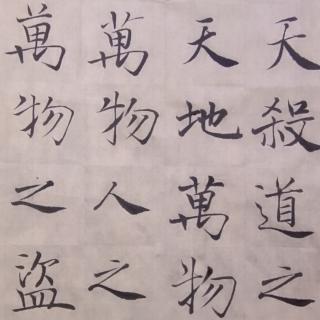 天殺道之
天地萬物
萬物人之
萬物之盜